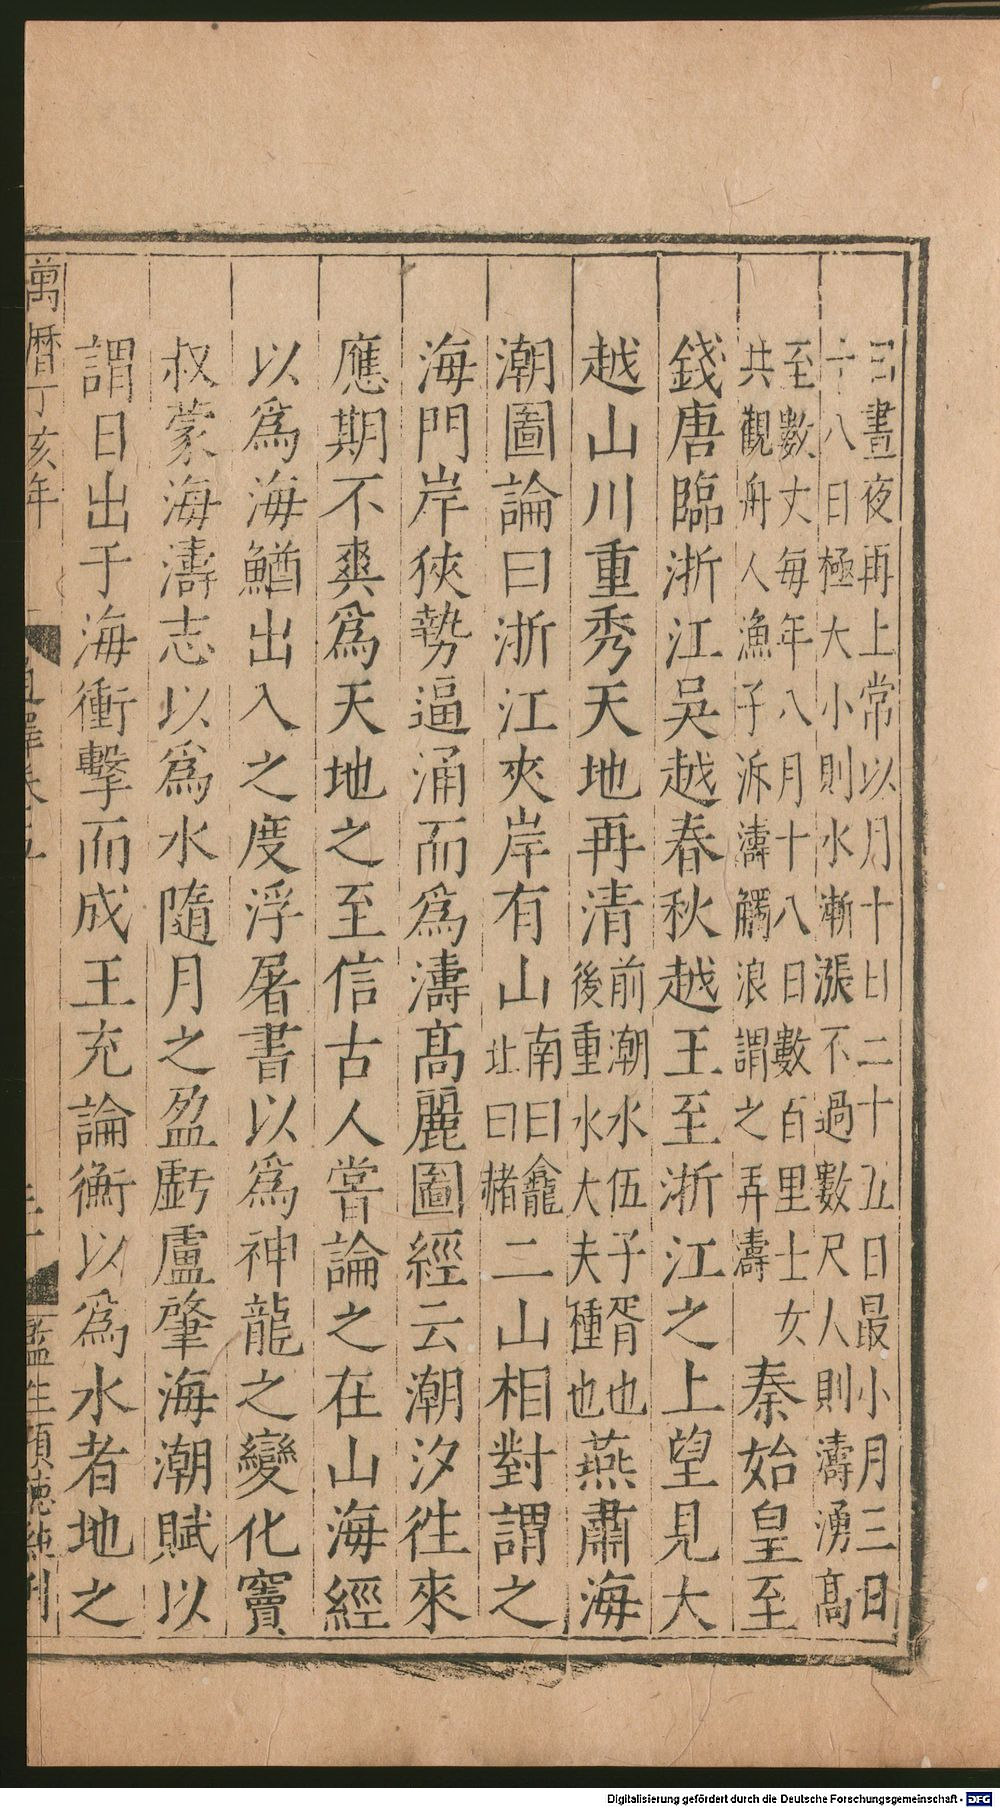 日晝夜再上常以月十日二十五日最小月三日
十八日極大小則水漸漲不過數尺人則濤湧髙
至數丈每年八月十八日數百里士女
共觀舟人漁子泝濤觸浪謂之弄濤
秦始皇至
錢唐臨浙江吳越春秋越王至浙江之上望見大
越山川重秀天地再清
前潮水伍子胥也
後重水大夫種也
燕肅海
潮圖論曰浙江夾岸有山
南曰龕
北曰赭
二山相對謂之
海門岸狹勢逼涌而爲濤髙麗圖經云潮汐徃來
應期不爽爲天地之至信古人嘗論之在山海經
以爲海鰌出入之度浮屠書以爲神龍之變化竇
叔蒙海濤志以爲水隨月之盈虧盧肇海潮賦以
謂日出于海衝擊而成王充論衡以爲水者地之
萬曆丁亥年
卷五
監生
刊
Digitalisierung gefördert durch die Deutsche Forschungsgemeinschaft - DFG